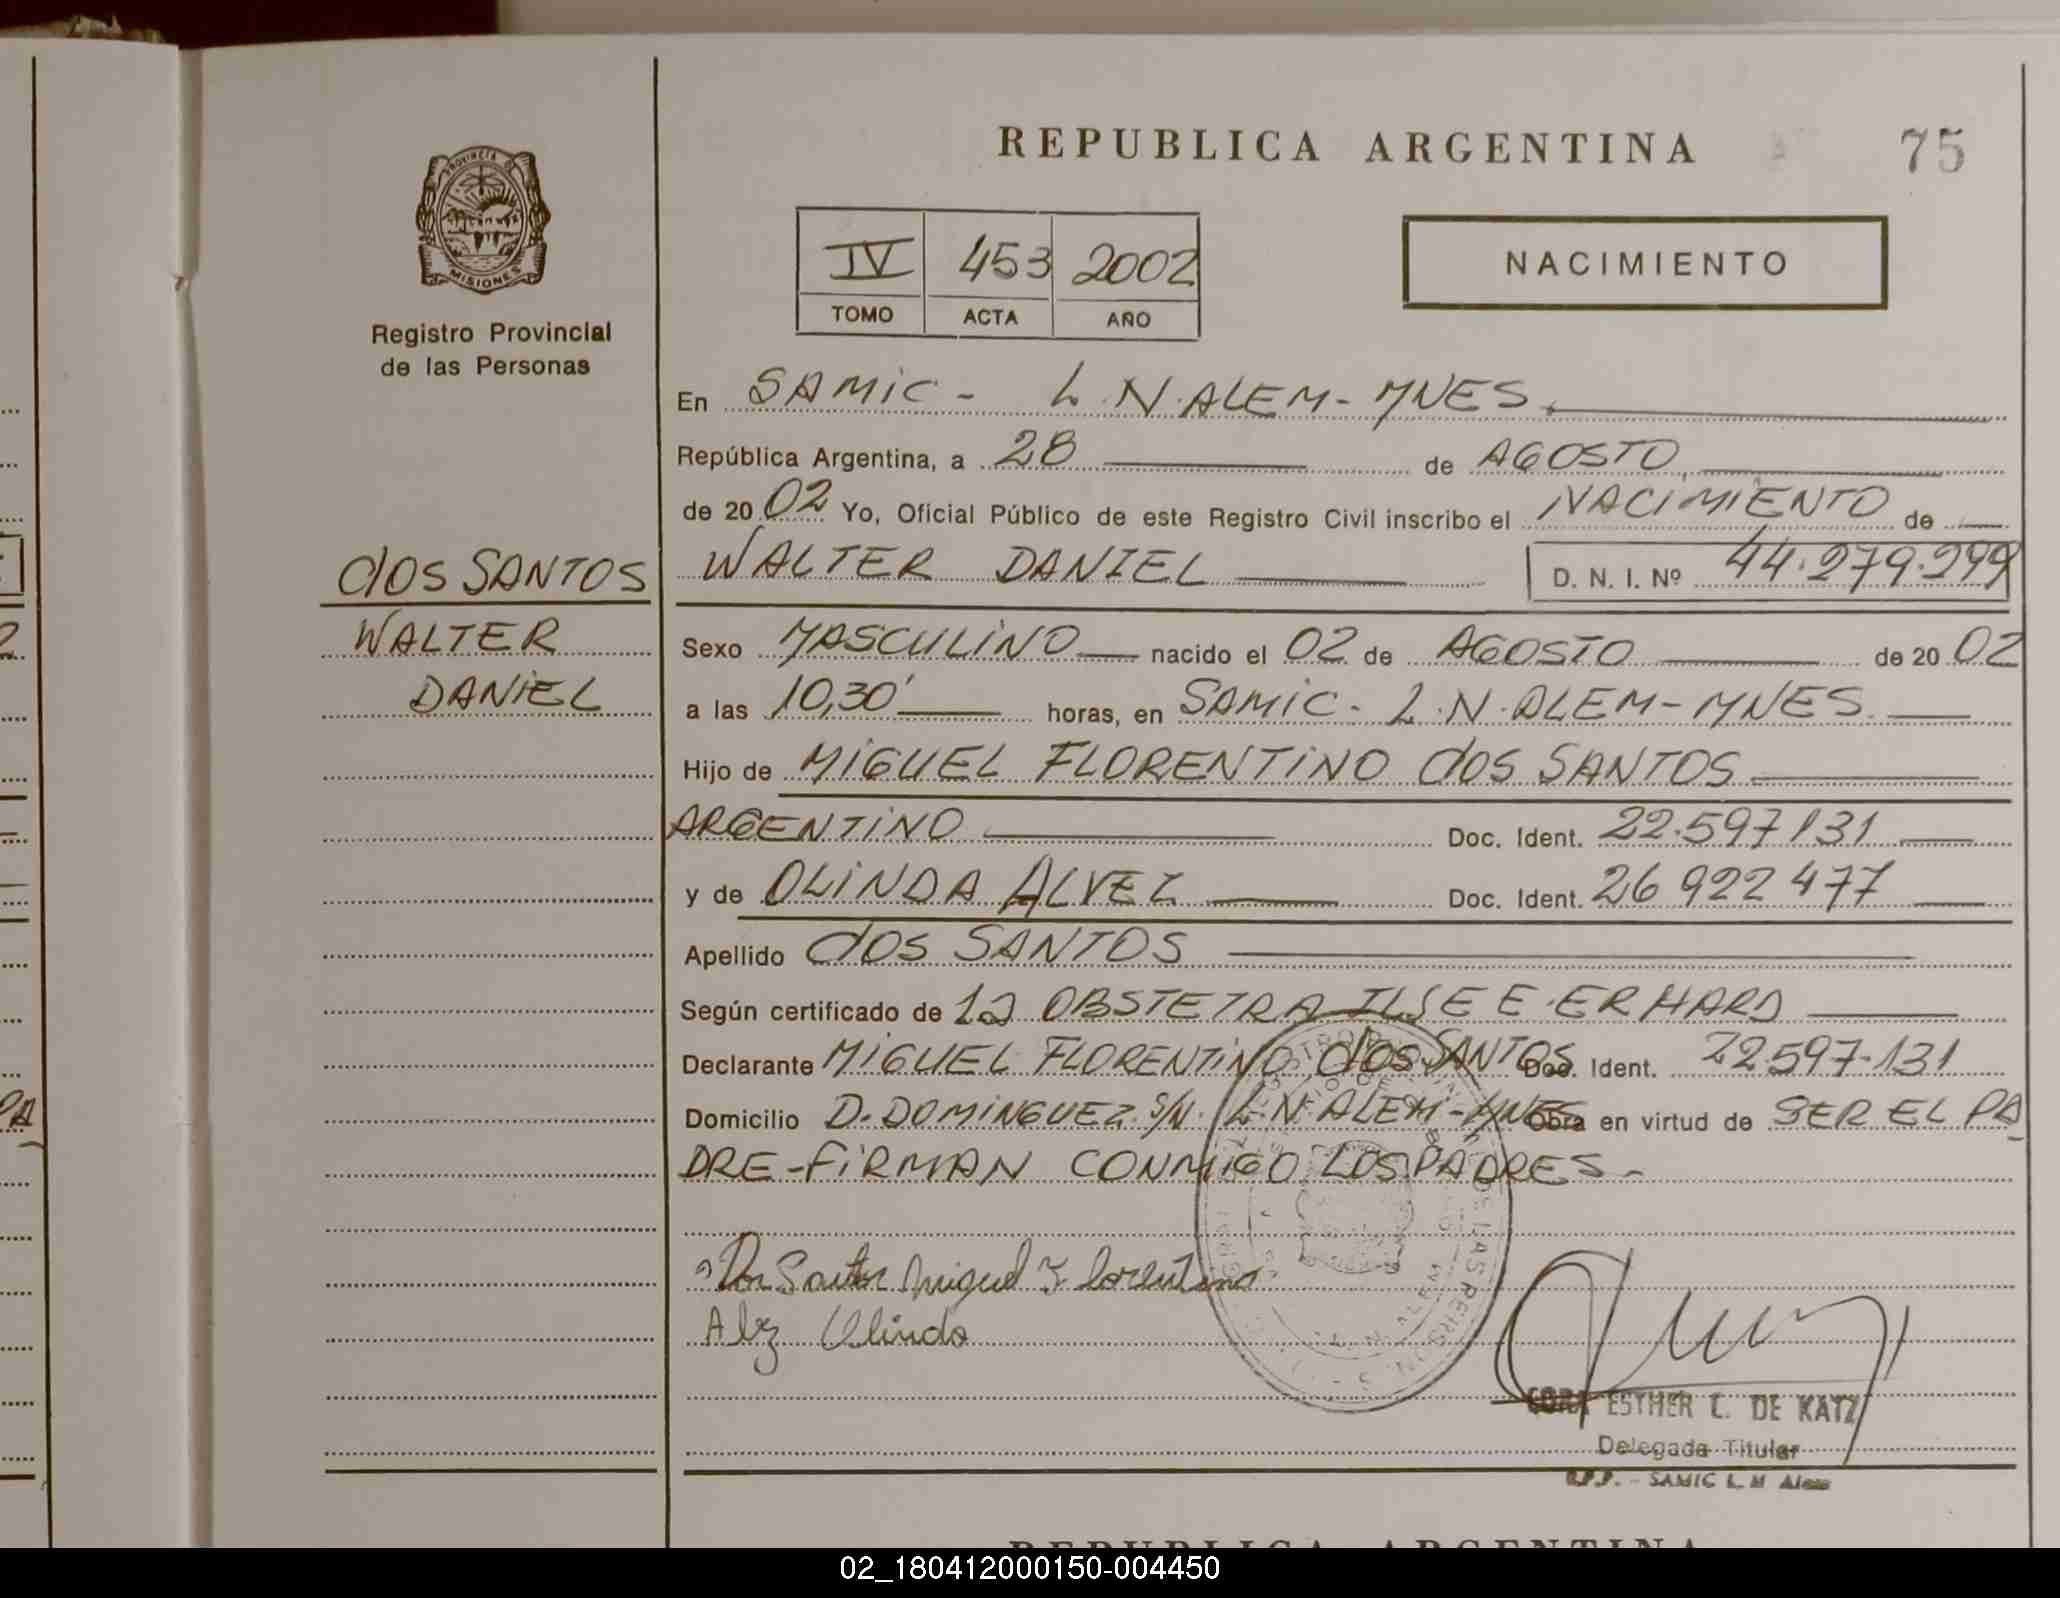 REPUBLICA ARGENTINA 75
PROVINCIA D MISIONES
Registro Provincial
de las Personas
IV 453 2002
TOMO ACTA AÑO
NACIMIENTO
En SAMIC - L.N.ALEM-MNES.
República Argentina, a 28 de AGOSTO
de 2002 Yo, Oficial Público de este Registro Civil inscribo el NACIMIENTO de
dos SANTOS WALTER DANIEL D. N. I. Nº 44.279.299
WALTER
DANIEL
Sexo MASCULINO nacido el 02 de AGOSTO de 2002
a las 10,30' horas, en SAMIC - L.N.ALEM-MNES.
Hijo de MIGUEL FLORENTINO dos SANTOS
ARGENTINO Doc. Ident. 22.597131
y de OLINDA ALVEZ Doc. Ident. 26 922 477
Apellido dos SANTOS
Según certificado de la OBSTETRA ILSE E. ERHARD
Declarante MIGUEL FLORENTINO dos SANTOS Doc. Ident. 22597-131
Domicilio D. DOMINGUEZ S/N. L.N ALEM-MNES Obra en virtud de SER EL PA
DRE-FIRMAN CONMIGO LOS PADRES-
Dos Santos Miguel Florentino
Olindo
CORA ESTHER L. DE KATZ
Delegada Titular
R.P.P. - SAMIC L. N Alem
REPUBLICA ARGENTINA
02_180412000150-004450